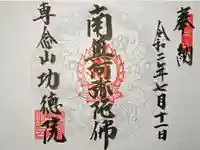 奉納
令和二年七月十二日
南無阿弥陀佛
専念山 功徳院